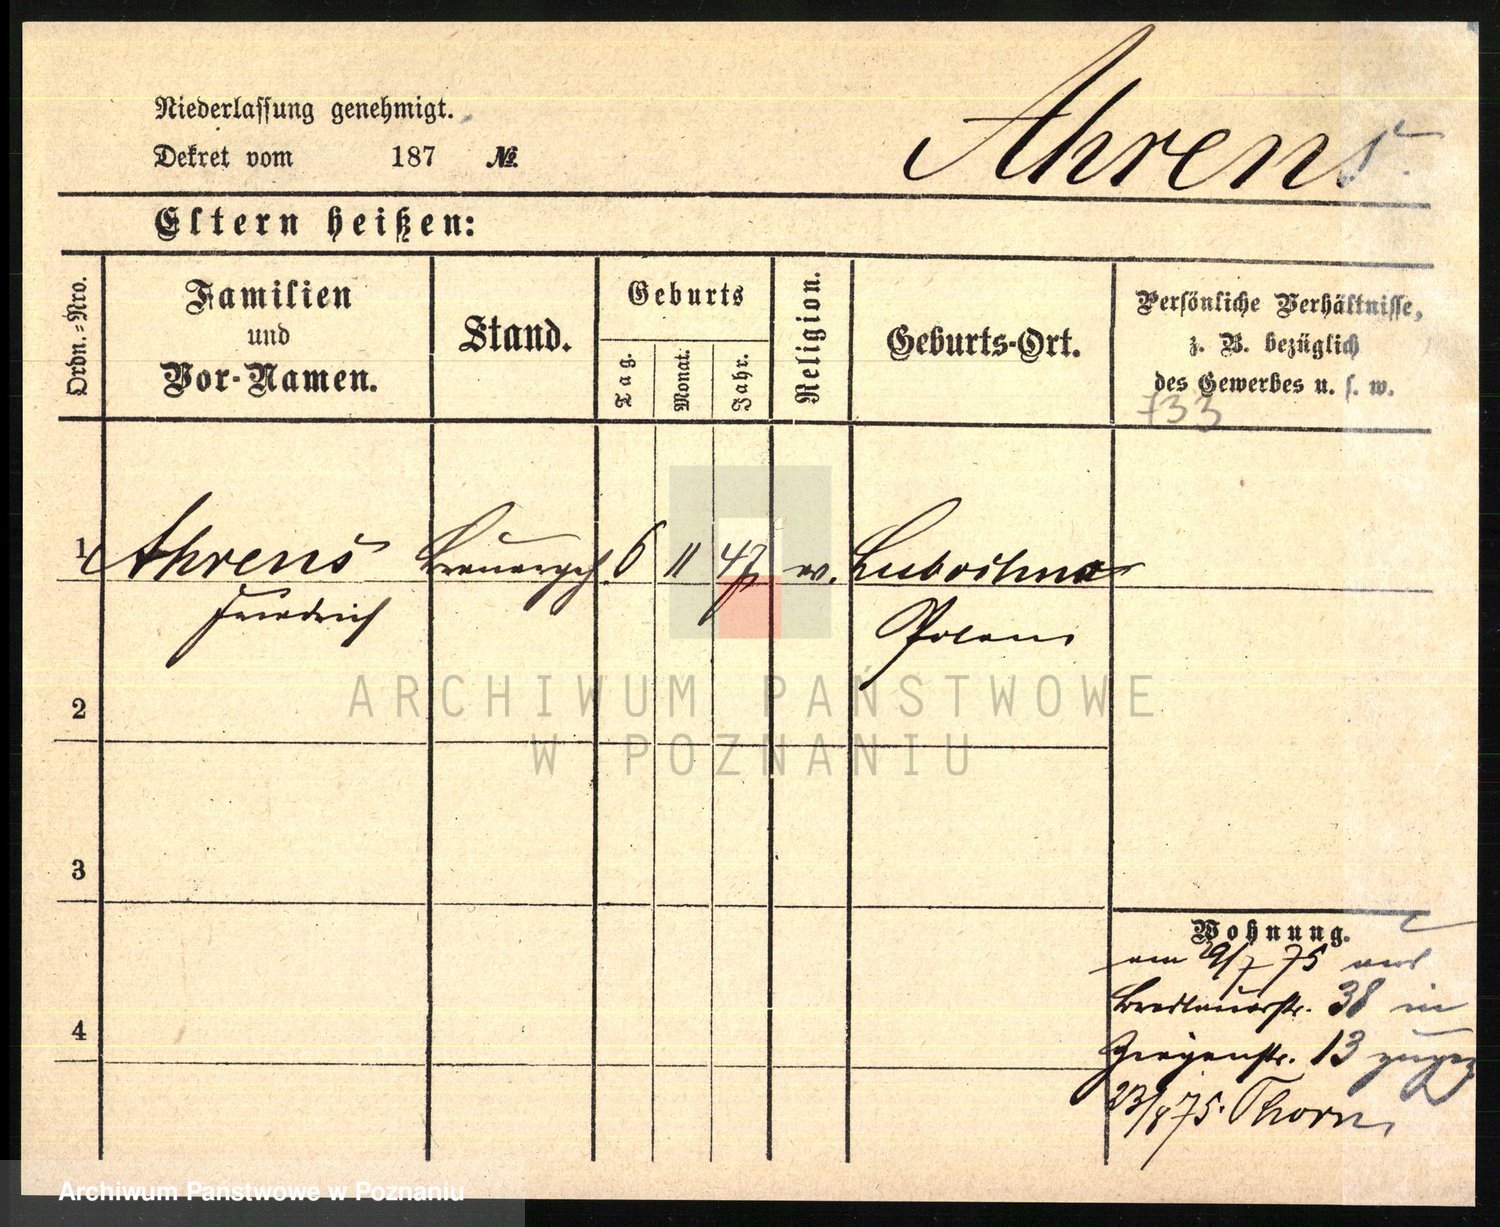 Niederlassung genehmigt.
Dekret vom 187 №
Ahrens.
Eltern heißen:
Ordn.-Nro.
Familien
und
Vor-Namen.
Stand.
Geburts
Tag.
Monat.
Jahr.
Religion.
Geburts-Ort.
Persönliche Verhältnisse,
z. B. bezüglich
des Gewerbes u. s. w.
733
1 Ahrens Brauergeh. 6 11 47 ev.
Friedrich Polen
2
ARCHIWUM PAŃSTWOWE
W POZNANIU
3
Wohnung.
am 9/7 75 aus
Breslauerstr. 38 in
4
13 zugez
23/8 75. Thorn
Archiwum Państwowe w Poznaniu